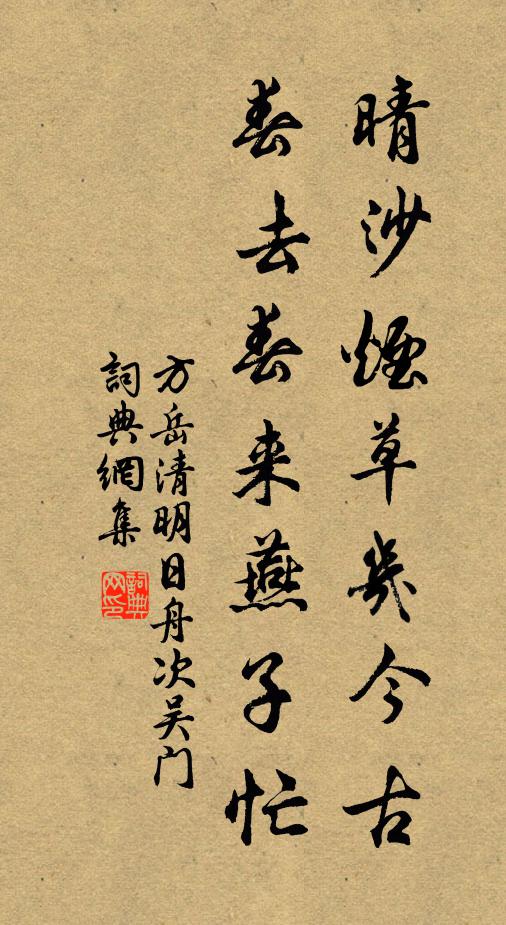 晴沙煙草幾今古
春去春来燕子忙
方岳清明日舟次吴门
詞典網集
詞典网印